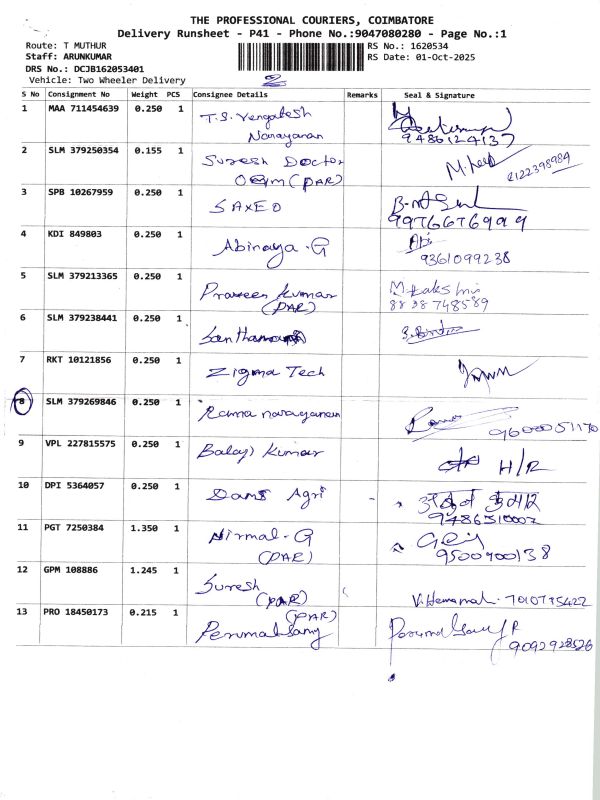 THE PROFESSIONAL COURIERS, COIMBATORE
Delivery Runsheet - P41 - Phone No.:9047080280 - Page No.:1
Route: T MUTHUR RS No.: 1620534
Staff: ARUNKUMAR RS Date: 01-Oct-2025
DRS No.: DCJB162053401
Vehicle: Two Wheeler Delivery
2
S No Consignment No Weight PCS Consignee Details Remarks Seal & Signature
1 MAA 711454639 0.250 1 T.S. Vengatesh
Narayanan 9486124137
2 SLM 379250354 0.155 1 Suresh Doctor
(PAR) 8122398984
3 SPB 10267959 0.250 1 SAXEO
9976676999
4 KDI 849803 0.250 1 Abinaya - G Abi
9361099238
5 SLM 379213365 0.250 1 Praveen Kumar M. Lakshmi
(PAR) 8838748589
6 SLM 379238441 0.250 1
7 RKT 10121856 0.250 1 Zigma Tech
8 SLM 379269846 0.250 1 Rama narayanan
9600051170
9 VPL 227815575 0.250 1 Balaji Kumar H/R
10 DPI 5364057 0.250 1 Agri
9486510007
11 PGT 7250384 1.350 1 Nirmal - G
(PAR) 9500900138
12 GPM 108886 1.245 1 Suresh
(PAR) V. Hemamal. 7010775422
13 PRO 18450173 0.215 1 (PAR)
Perumalsamy
9092928526